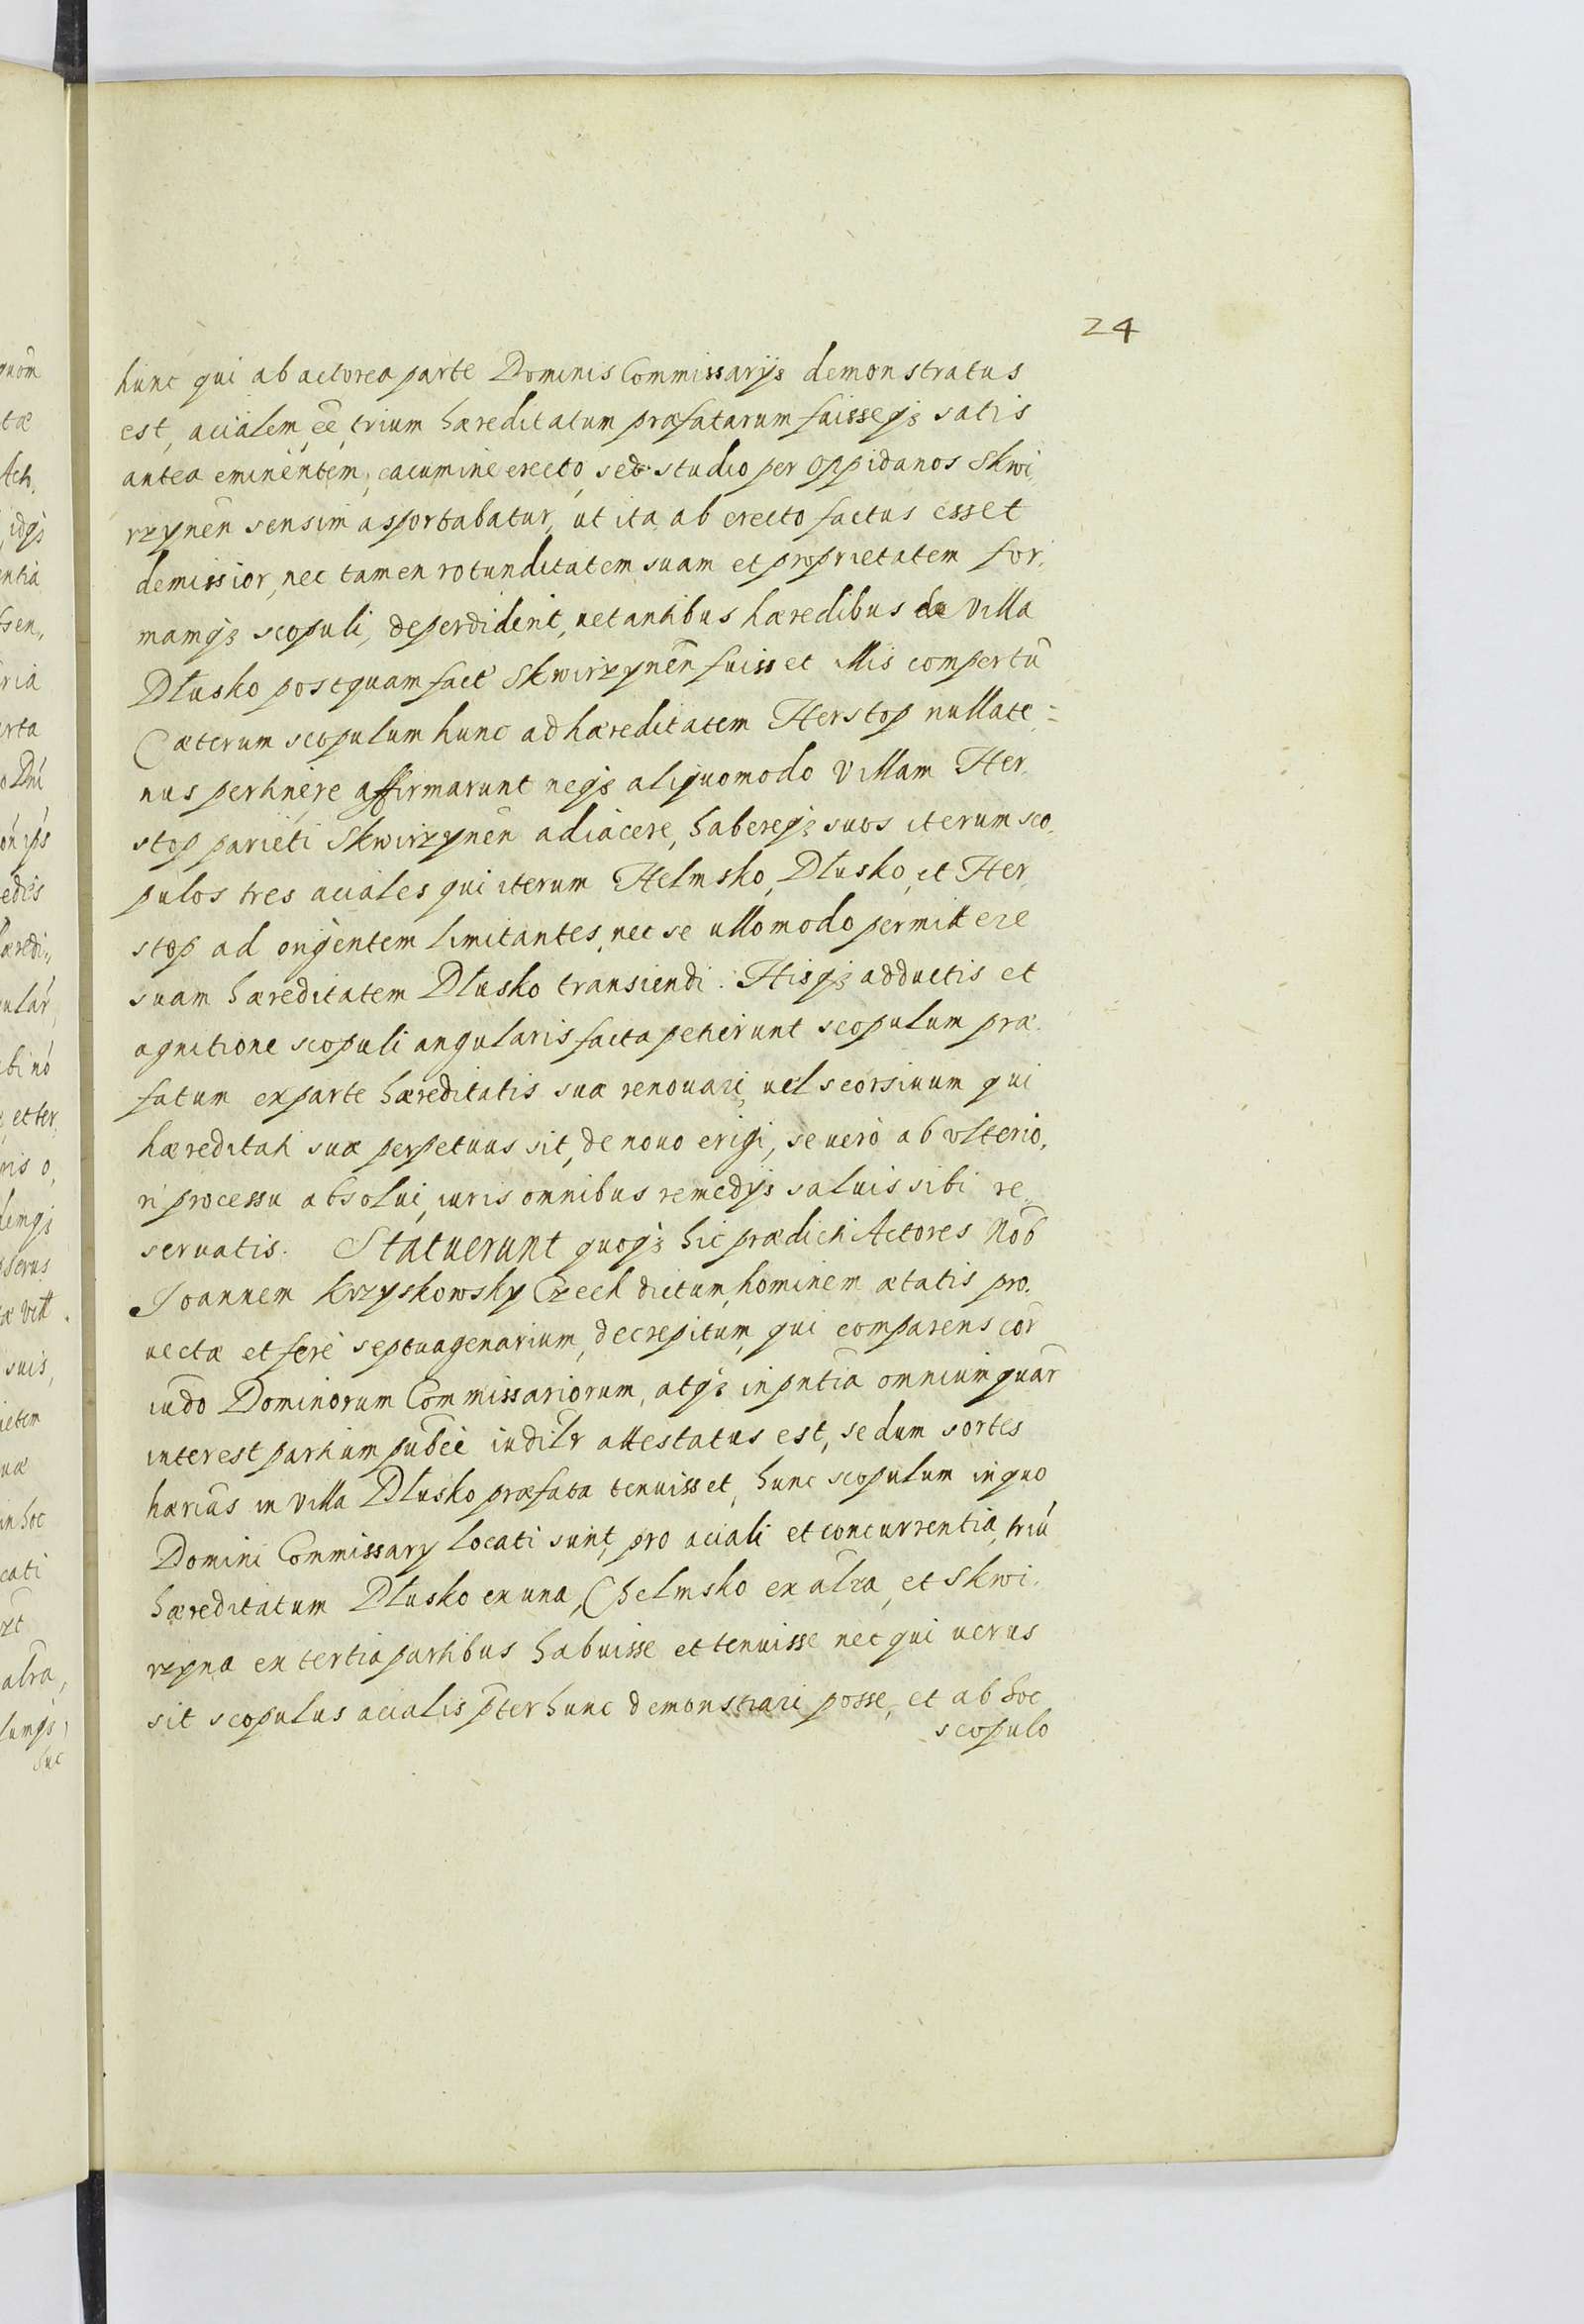 24
hunc qui ab actorea parte Dominis Commissarijs demonstratus
est, acialem, eē, trium hæreditatum præfatarum fuisseqȝ satis
antea eminentem, cacumine erecto, sed studio per oppidanos Skwi,
rzynen̄ sensim asportabatur, ut ita ab erecto factus esset
demissior, nec tamen rotunditatem suam et proprietatem for,
mamqȝ scopuli, deperdiderit, uetantibus hæredibus de villa
Dłusko postquam fact Skwirzynen̄ fuisset illis compertū
Cæterum scopulum hunc ad hæreditatem Herstop nullate =
nus pertinere affirmarunt neqȝ aliquomodo villam Her,
stop parieti Skwirzynen̄ adiacere, habereqȝ suos iterum sco,
pulos tres aciales qui iterum Helmsko, Dłusko, et Her,
stop ad orientem limitantes, nec se ullomodo permittere
suam hæreditatem Dłusko transiendi. Hisqȝ adductis et
agnitione scopuli angularis facta petierunt scopulum præ,
fatum ex parte hæreditatis suæ renouari, uel seorsiuum qui
hæreditati suæ perpetuus sit, de nouo erigi, se uerò ab vlterio,
ri processu absolui, iuris omnibus remedijs saluis sibi re,,
seruatis. Statuerunt quoqȝ hic prædicti Actores Nob̄
Joannem Krzyskowsky Czech dictum, hominem ætatis pro,
uectæ et ferè septuagenarium, decrepitum, qui comparens cor̄
iud̄o Dominorum Commissariorum, atqȝ in pn̄tia omnium quar̄
interest partium pub̄ce iudilr̄ attestatus est, se dum sortes
hærias̄ in villa Dłusko præfata tenuisset, hunc scopulum in quo
Domini Commissary locati sunt, pro aciali et concurrentia, triū
hæreditatum Dłusko ex una, Chelmsko ex alr̄a, et Skwi,
rzyna ex tertia partibus habuisse et tenuisse nec qui uerus
sit scopulus acialis p̄ter hunc demonstrari posse, et ab hoc
scopulo